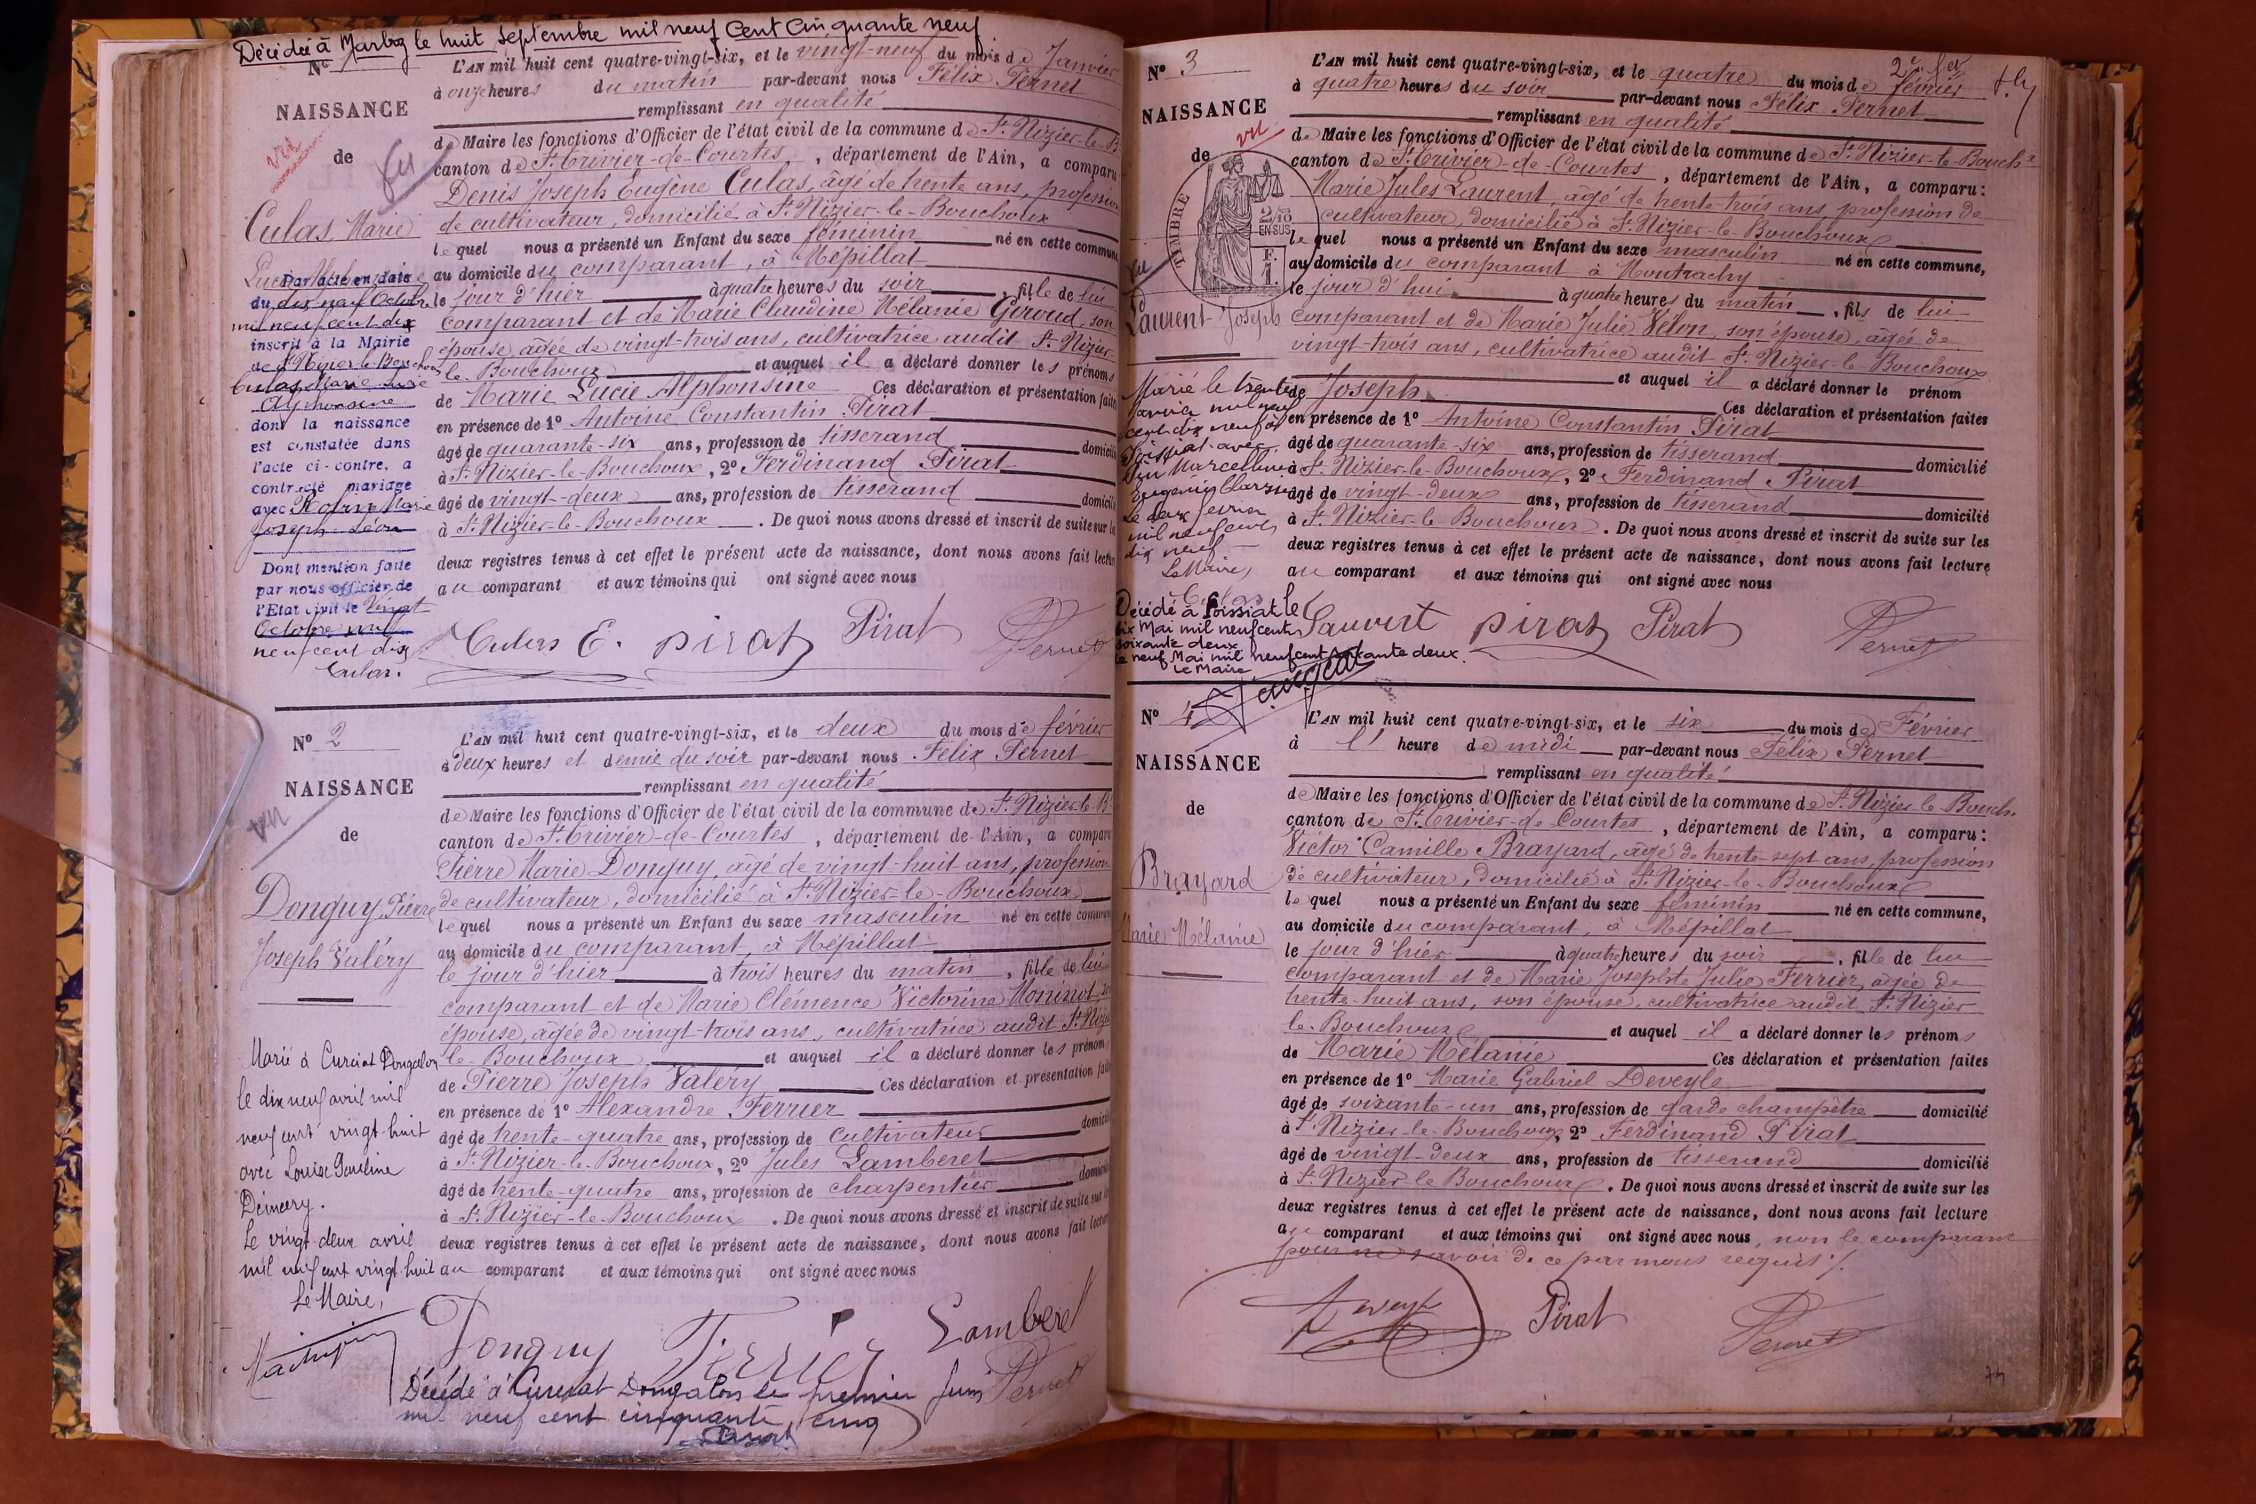 Décédée à Marboz le huit septembre mil neuf cent cinquante neuf
Nº
NAISSANCE
de
vu
Culas, Marie
Par acte en date
du dix neuf Octobre
mil neuf cent dix
inscrit à la Mairie
de St Nizier le Bouchoux
Culas Marie Lucie
Alphonsine
dont la naissance
est constatée dans
l'acte ci-contre, a
contracté mariage
avec Marie
Joseph Léon
Dont mention faite
par nous officier de
l'Etat civil le Vingt
Octobre mil
neuf cent dix
Culas.
L'AN mil huit cent quatre-vingt-six, et le vingt-neuf du mois de Janvier
à onze heures du matin par-devant nous Félix Pernet
remplissant en qualité
de Maire les fonctions d'Officier de l'état civil de la commune de St. Nizier-le-B
canton de St. Trivier-de-Courtes, département de l'Ain, a comparu
Denis Joseph Eugène Culas, âgé de trente ans, profession
de cultivateur, domicilié à St. Nizier-le-Bouchoux
lequel nous a présenté un Enfant du sexe féminin né en cette commune
au domicile du comparant, à Mépillat
le jour d'hier à quatre heures du soir, fille de lui
comparant et de Marie Claudine Mélanie Giroud, son
épouse, âgée de vingt-trois ans, cultivatrice audit St. Nizier
le-Bouchoux et auquel il a déclaré donner les prénoms
de Marie Lucie Alphonsine Ces déclaration et présentation faites
en présence de 1º Antoine Constantin Pirat
âgé de quarante-six ans, profession de tisserand domicilié
à St. Nizier-le-Bouchoux, 2º Ferdinand Pirat
âgé de vingt-deux ans, profession de tisserand domicilié
à St. Nizier-le-Bouchoux. De quoi nous avons dressé et inscrit de suite sur le
deux registres tenus à cet effet le présent acte de naissance, dont nous avons fait lecture
au comparant et aux témoins qui ont signé avec nous
Culas E. Pirat Pirat Pernet
Nº 2
NAISSANCE
de
vu
Donguy, Pierre
Joseph Valéry
Marié à Curciat Dongalon
le dix neuf avril mil
neuf cent vingt-huit
avec Louise
Le vingt deux avril
mil neuf cent vingt-huit
Le Maire,
L'AN mil huit cent quatre-vingt-six, et le deux du mois de février
à deux heures et demie du soir par-devant nous Félix Pernet
remplissant en qualité
de Maire les fonctions d'Officier de l'état civil de la commune de St. Nizier-le-B
canton de St. Trivier-de-Courtes, département de l'Ain, a comparu
Pierre Marie Donguy, âgé de vingt-huit ans, profession
de cultivateur, domicilié à St. Nizier-le-Bouchoux
lequel nous a présenté un Enfant du sexe masculin né en cette commune
au domicile du comparant, à Mépillat
le jour d'hier à trois heures du matin, fille de lui
comparant et de Marie Clémence Victorine Moninot, son
épouse, âgée de vingt-trois ans, cultivatrice audit St. Nizier
le-Bouchoux et auquel il a déclaré donner les prénoms
de Pierre Joseph Valéry Ces déclaration et présentation faites
en présence de 1º Alexandre Ferrier
âgé de trente-quatre ans, profession de cultivateur domicilié
à St. Nizier-le-Bouchoux, 2º Jules Lamberet
âgé de trente-quatre ans, profession de charpentier domicilié
à St. Nizier-le-Bouchoux. De quoi nous avons dressé et inscrit de suite sur
deux registres tenus à cet effet le présent acte de naissance, dont nous avons fait lecture
au comparant et aux témoins qui ont signé avec nous
Donguy Ferrier Lamberet
Pernet
Décédé à Curciat Dongalon le premier Juin
mil neuf cent cinquante cinq
Nº 3
NAISSANCE
de
vu
TIMBRE
2/10
EN SUS
F.
1.
Laurent Joseph
Marié le trente
janvier mil neuf
cent dix neuf à
Foissiat avec
Marcelline
Eugénie
Le deux février
mil neuf cent
dix neuf
Le Maire,
Culas
Décédé à Foissiat le
six Mai mil neuf cent
soixante deux
le neuf Mai mil neuf cent soixante deux.
Le Maire
2e fer
L'AN mil huit cent quatre-vingt-six, et le quatre du mois de février
à quatre heures du soir par-devant nous Félix Pernet
remplissant en qualité
de Maire les fonctions d'Officier de l'état civil de la commune de St. Nizier-le-Bouchx
canton de St. Trivier-de-Courtes, département de l'Ain, a comparu:
Marie Jules Laurent, âgé de trente-trois ans, profession de
cultivateur, domicilié à St. Nizier-le-Bouchoux
lequel nous a présenté un Enfant du sexe masculin né en cette commune,
au domicile du comparant à Montrachy
le jour d'hui à quatre heures du matin, fils de lui
comparant et de Marie Julie Vélon, son épouse, âgée de
vingt-trois ans, cultivatrice audit St. Nizier-le-Bouchoux
et auquel il a déclaré donner le prénom
de Joseph Ces déclaration et présentation faites
en présence de 1º Antoine Constantin Pirat
âgé de quarante-six ans, profession de tisserand domicilié
à St. Nizier-le-Bouchoux, 2º Ferdinand Pirat
âgé de vingt-deux ans, profession de tisserand domicilié
à St. Nizier-le-Bouchoux. De quoi nous avons dressé et inscrit de suite sur les
deux registres tenus à cet effet le présent acte de naissance, dont nous avons fait lecture
au comparant et aux témoins qui ont signé avec nous
Laurent Pirat Pirat Pernet
Nº 4
NAISSANCE
de
Brayard
Marie Mélanie
L'AN mil huit cent quatre-vingt-six, et le six du mois de Février
à l' heure de midi par-devant nous Félix Pernet
remplissant en qualité
de Maire les fonctions d'Officier de l'état civil de la commune de St. Nizier-le-Bouch.
canton de St. Trivier-de-Courtes, département de l'Ain, a comparu:
Victor Camille Brayard, âgé de trente-sept ans, profession
de cultivateur, domicilié à St. Nizier-le-Bouchoux
lequel nous a présenté un Enfant du sexe féminin né en cette commune,
au domicile du comparant, à Mépillat
le jour d'hier à quatre heures du soir, fille de lui
comparant et de Marie Josephte Julie Ferrier, âgée de
trente-huit ans, son épouse, cultivatrice audit St. Nizier
le-Bouchoux et auquel il a déclaré donner les prénoms
de Marie Mélanie Ces déclaration et présentation faites
en présence de 1º Marie Gabriel Deveyle
âgé de soixante-un ans, profession de garde champêtre domicilié
à St. Nizier-le-Bouchoux, 2º Ferdinand Pirat
âgé de vingt-deux ans, profession de tisserand domicilié
à St. Nizier le Bouchoux. De quoi nous avons dressé et inscrit de suite sur les
deux registres tenus à cet effet le présent acte de naissance, dont nous avons fait lecture
au comparant et aux témoins qui ont signé avec nous, non le comparant
pour ne savoir de ce par nous requis
Deveyle Pirat Pernet